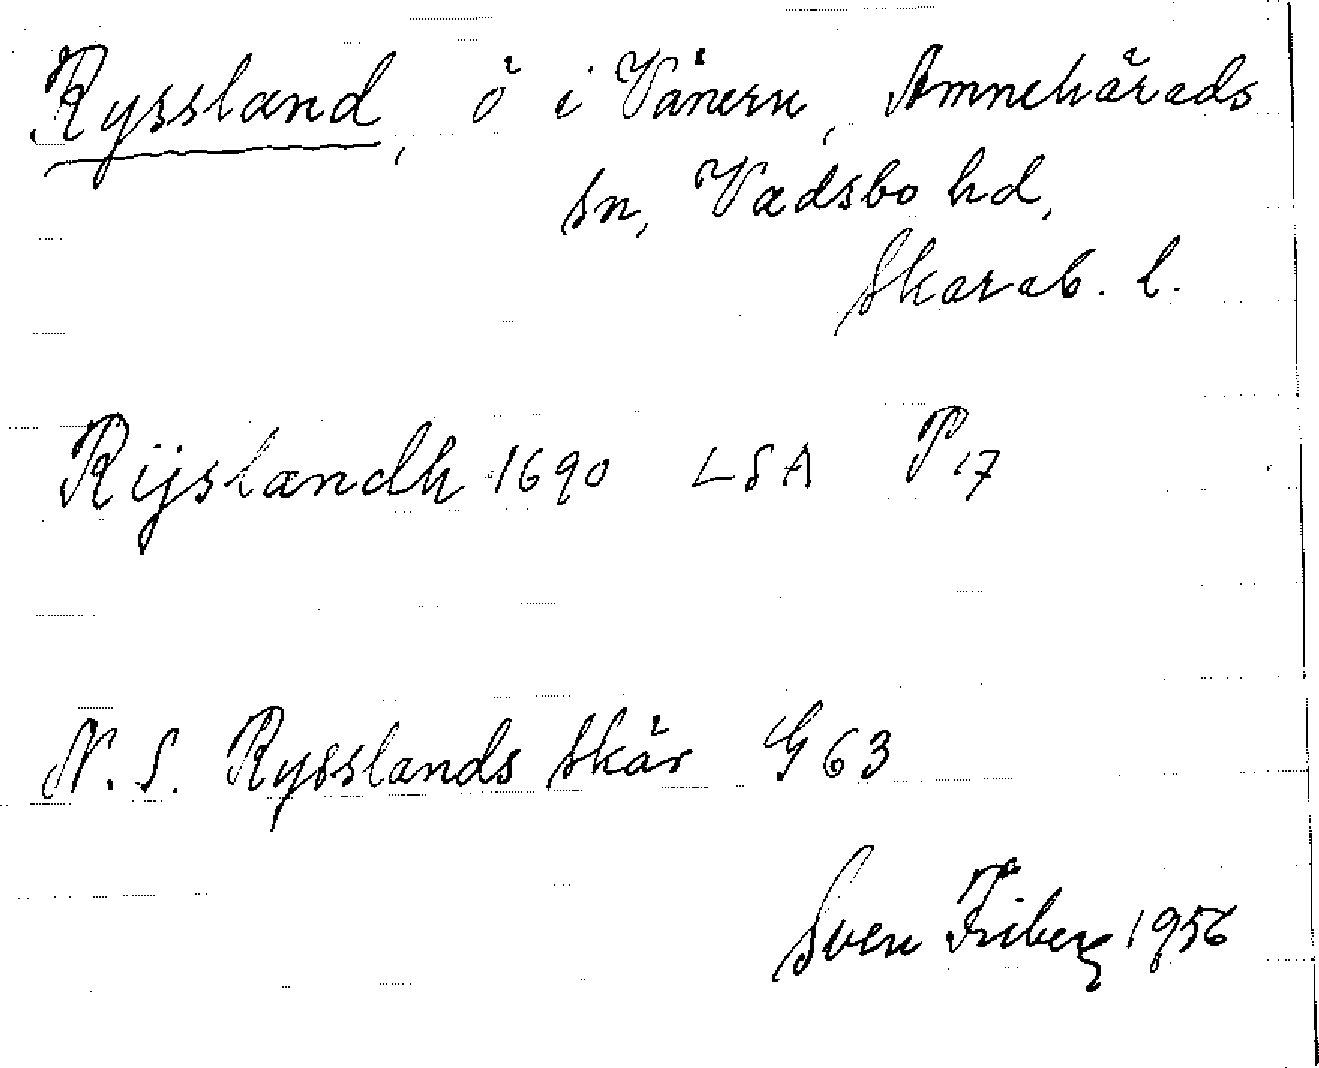 Ryssland, ö i Vänern, Amnehärads
sn, Vadsbo hd,
Skarab. l.
Rijslandh 1690 LSA P17
N. S. Rysslands skär G 63
Sven Friberg 1956